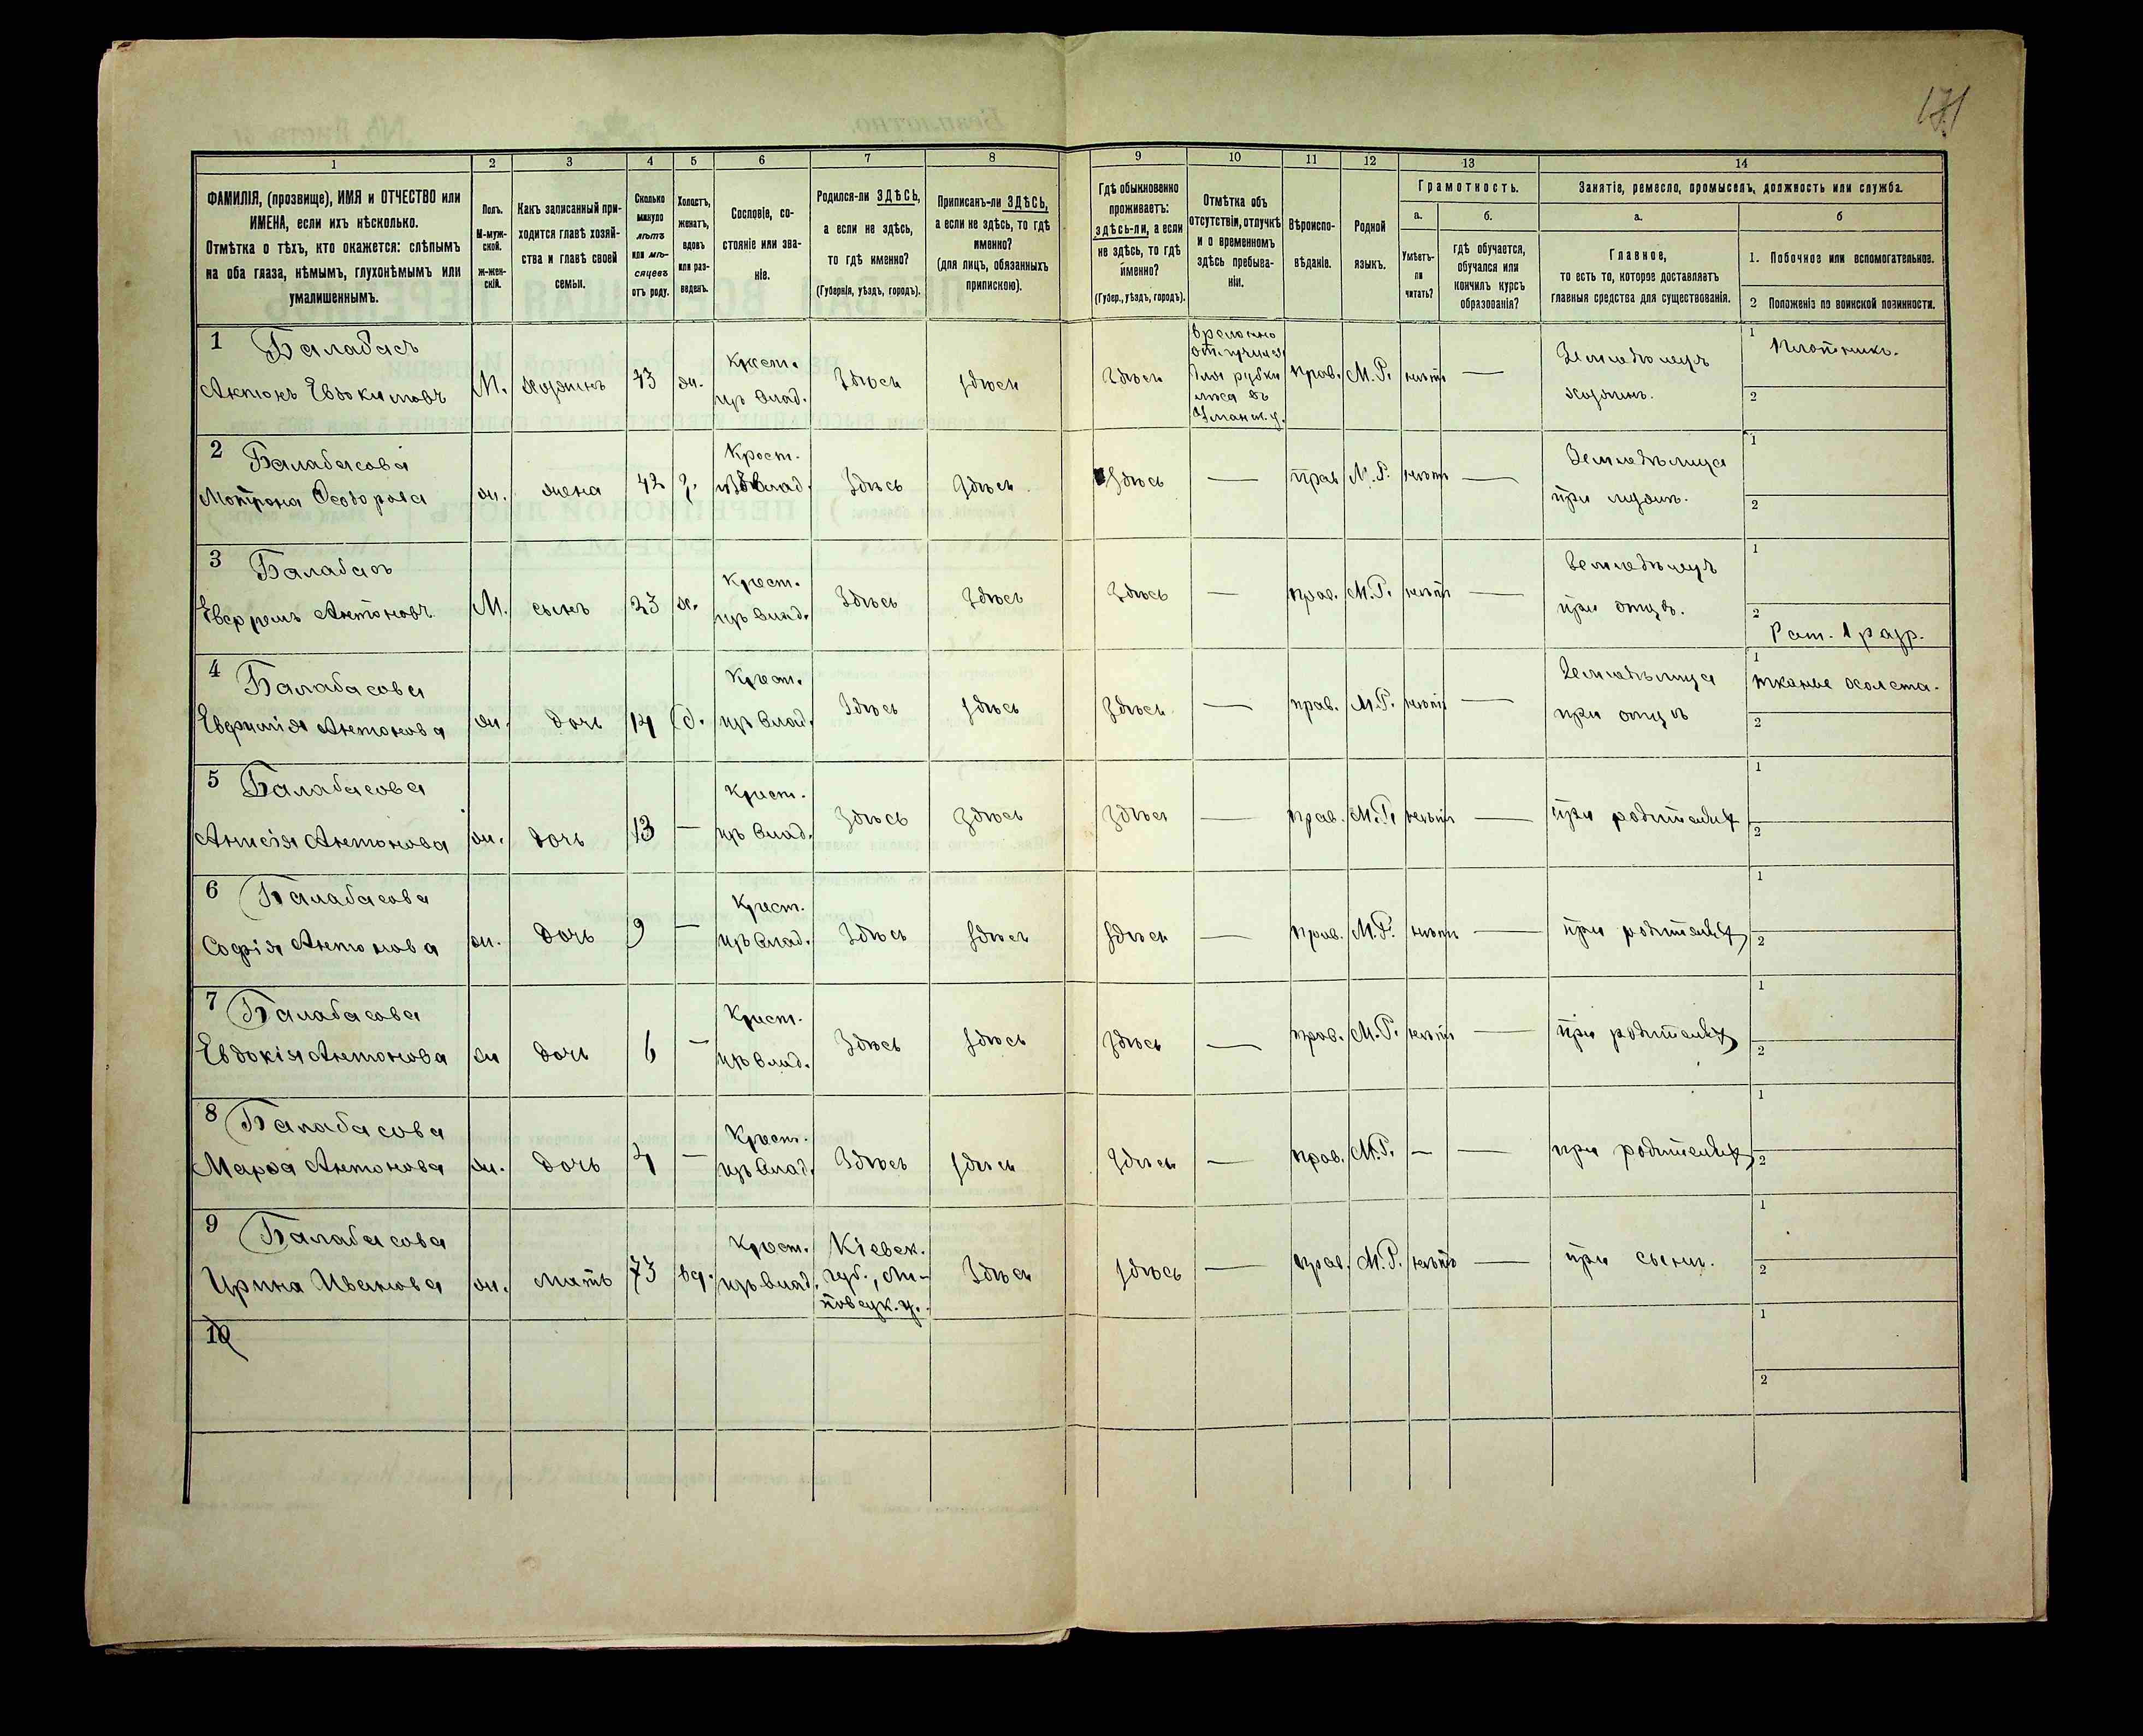 171
1 2 3 4 5 6 7 8 9 10 11 12 13 14
ФАМИЛІЯ, (прозвище), ИМЯ и ОТЧЕСТВО или
ИМЕНА, если ихъ нѣсколько.
Отмѣтка о тѣхъ, кто окажется: слѣпымъ
на оба глаза, нѣмымъ, глухонѣмымъ или
умалишеннымъ.
Полъ.
М-муж-
ской.
Ж-жен-
скій.
Какъ записанный при-
ходится главѣ хозяй-
ства и главѣ своей
семьи.
Сколько
минуло
лѣтъ
или мѣ-
сяцевъ
отъ роду.
Холостъ,
женатъ,
вдовъ
или раз-
веденъ.
Сословіе, со-
стояніе или зва-
ніе.
Родился-ли ЗДѢСЬ,
а если не здѣсь,
то гдѣ именно?
(Губернія, уѣздъ, городъ).
Приписанъ-ли ЗДѢСЬ,
а если не здѣсь, то гдѣ
именно?
(для лицъ, обязанныхъ
припискою).
Гдѣ обыкновенно
проживаетъ:
здѣсь-ли, а если
не здѣсь, то гдѣ
именно?
(Губер., уѣздъ, городъ).
Отмѣтка объ
отсутствіи, отлучкѣ
и о временномъ
здѣсь пребыва-
ніи.
Вѣроиспо-
вѣданіе.
Родной
языкъ.
Грамотность.
а.
Умѣетъ-
ли
читать?
б.
гдѣ обучается,
обучался или
кончилъ курсъ
образованія?
Занятіе, ремесло, промыселъ, должность или служба.
а.
Главное,
то есть то, которое доставляетъ
главныя средства для существованія.
б
1. Побочное или вспомогательное.
2 Положеніе по воинской повинности.
1 Балабасъ
Антонъ Евдокимовъ
М. хозяинъ 43 ж.
Крест.
изъ влад.
Здѣсь Здѣсь Здѣсь
временно
отлучился
для рубки
лѣса въ
Уманск. у.
прав. М.Р. нѣтъ —
Земледѣлецъ
хозяинъ.
1 Плотникъ.
2
2 Балабасова
Мотрона Ѳеодорова
ж. жена 42 з.
Крест.
влад.
Здѣсь Здѣсь Здѣсь — прав М.Р. нѣтъ —
Земледѣлица
при мужѣ.
1
2
3 Балабасъ
Евфремъ Антоновъ
М. сынъ 23 х.
Крест.
изъ влад.
Здѣсь Здѣсь Здѣсь — прав. М.Р. нѣтъ —
Земледѣлецъ
при отцѣ.
1
2 Рат. 1 разр.
4 Балабасова
Евфимія Антонова
ж. дочь 14 д.
Крест.
изъ влад.
Здѣсь Здѣсь Здѣсь — прав. М.Р. нѣтъ —
Земледѣлица
при отцѣ
1 тканье холста.
2
5 Балабасова
Анисія Антонова
ж. дочь 13 —
Крест.
изъ влад.
Здѣсь Здѣсь Здѣсь — прав. М.Р. нѣтъ — при родителях
1
2
6 Балабасова
Софія Антонова
ж. дочь 9 —
Крест.
изъ влад.
Здѣсь Здѣсь Здѣсь — прав. М.Р. нѣтъ — при родителях
1
2
7 Балабасова
Евдокія Антонова
ж дочь 6 —
Крест.
изъ влад.
Здѣсь Здѣсь Здѣсь — прав. М.Р. нѣтъ — при родителях
1
2
8 Балабасова
Марѳа Антонова
ж. дочь 4 —
Крест.
изъ влад.
Здѣсь Здѣсь Здѣсь — прав. М.Р. — — при родителях
1
2
9 Балабасова
Ирина Иванова
ж. мать 73 вд.
Крест.
изъ влад.
Кіевск.
губ., Ли-
повецк. у.
Здѣсь Здѣсь — прав. М.Р. нѣтъ — при сынѣ.
1
2
10
1
2